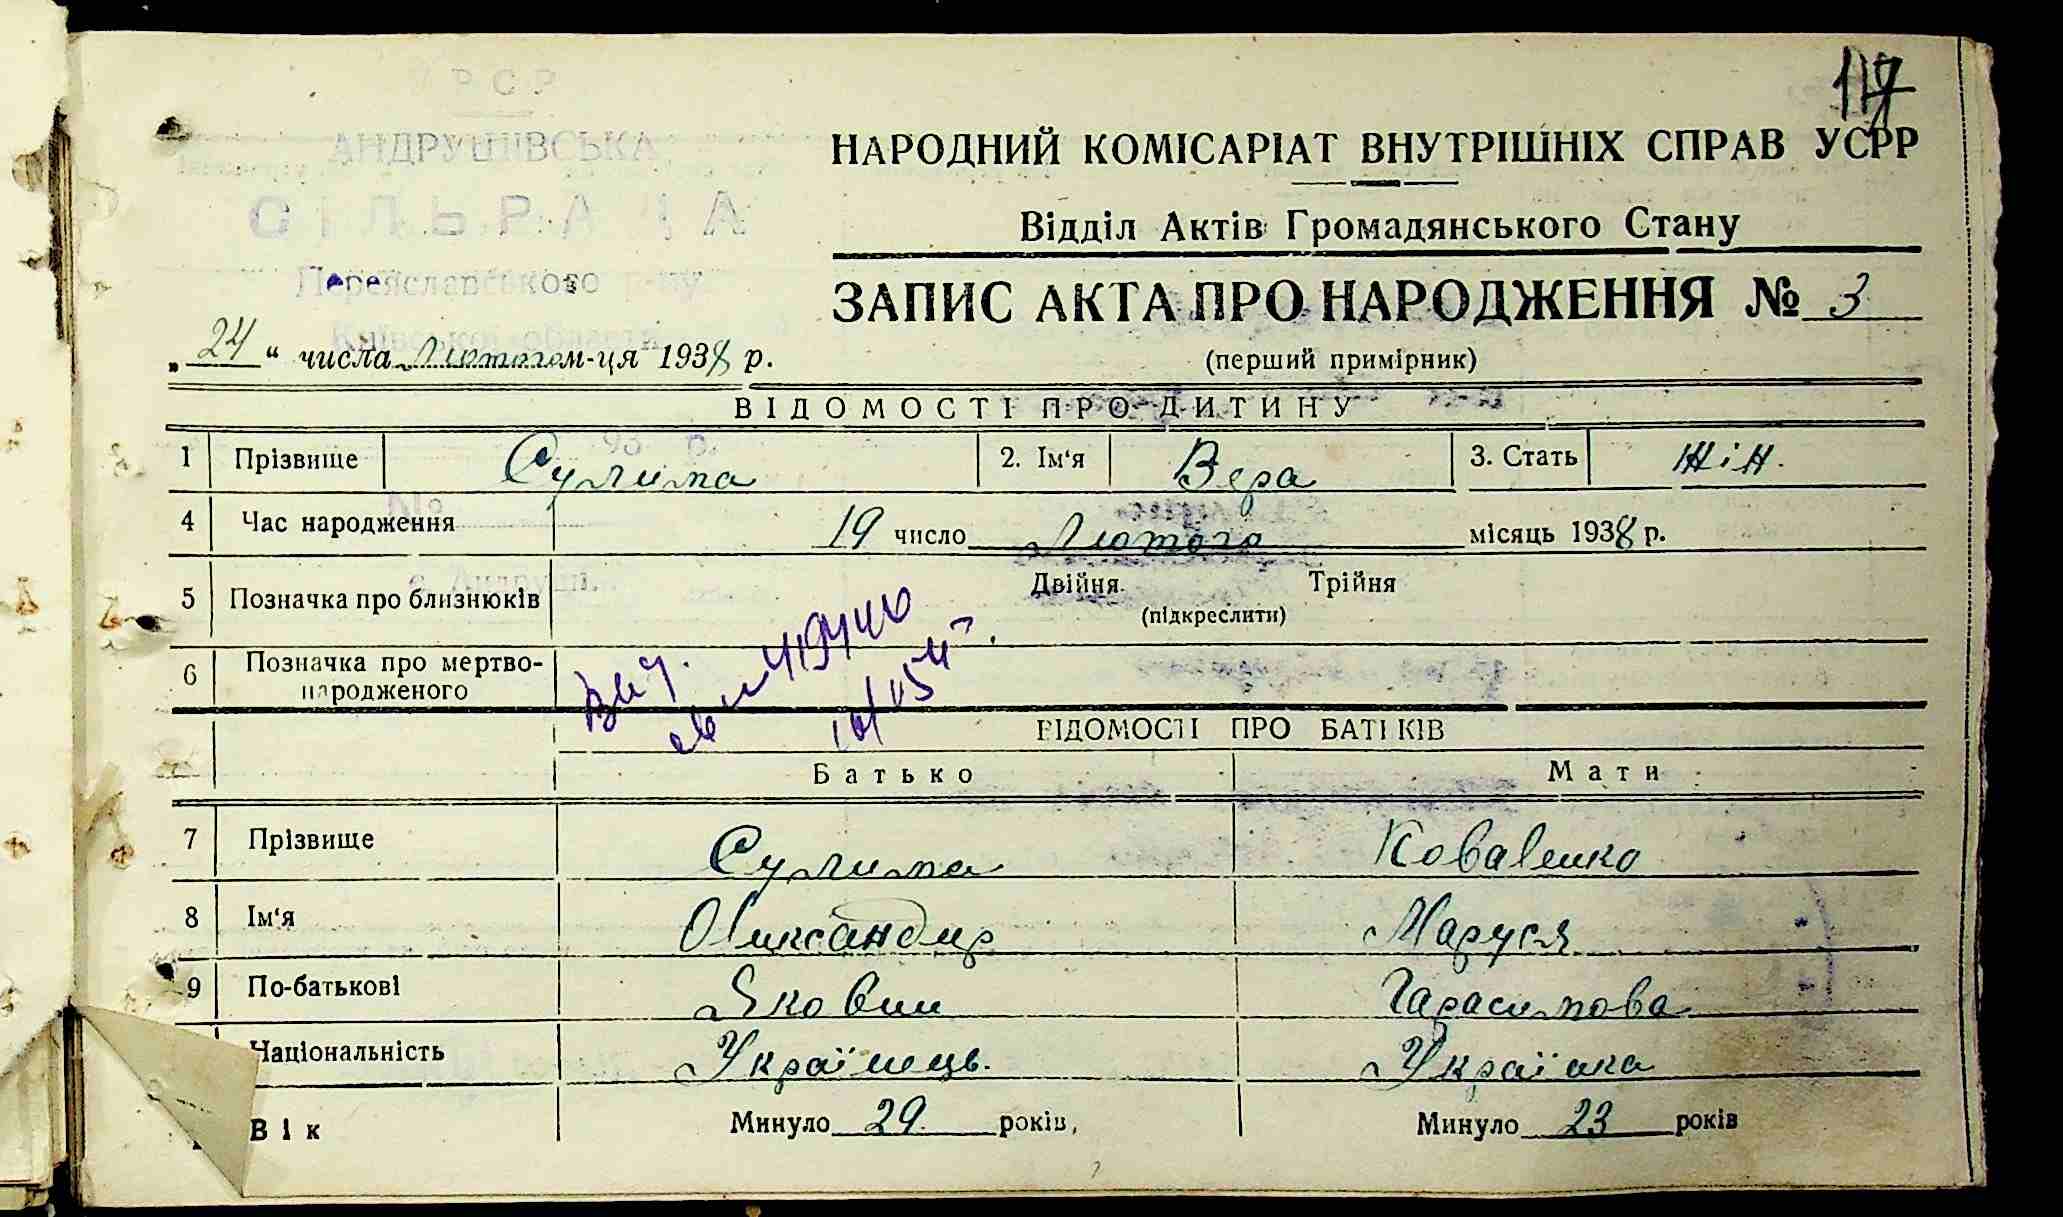 117
РСР
АНДРУШІВСЬКА
СІЛЬРАДА
Переяславського р-ну
Київської області
НАРОДНИЙ КОМІСАРІАТ ВНУТРІШНІХ СПРАВ УСРР
Відділ Актів Громадянського Стану
ЗАПИС АКТА ПРО НАРОДЖЕННЯ № 3
„24“ числа Лютого м-ця 1938 р.
(перший примірник)
ВІДОМОСТІ ПРО ДИТИНУ
1 Прізвище Сулима 2. Ім‘я Вера 3. Стать жін.
4 Час народження 19 число Лютого місяць 1938 р.
с. Андруші.
5 Позначка про близнюків Двійня Трійня
(підкреслити)
6 Позначка про мертво-
народженого
ВІДОМОСТІ ПРО БАТЬКІВ
Батько Мати
7 Прізвище Сулима Коваленко
8 Ім‘я Олександер Маруся
9 По-батькові Якович Гарасимова
Національність Українець. Українка
Вік Минуло 29 років, Минуло 23 років